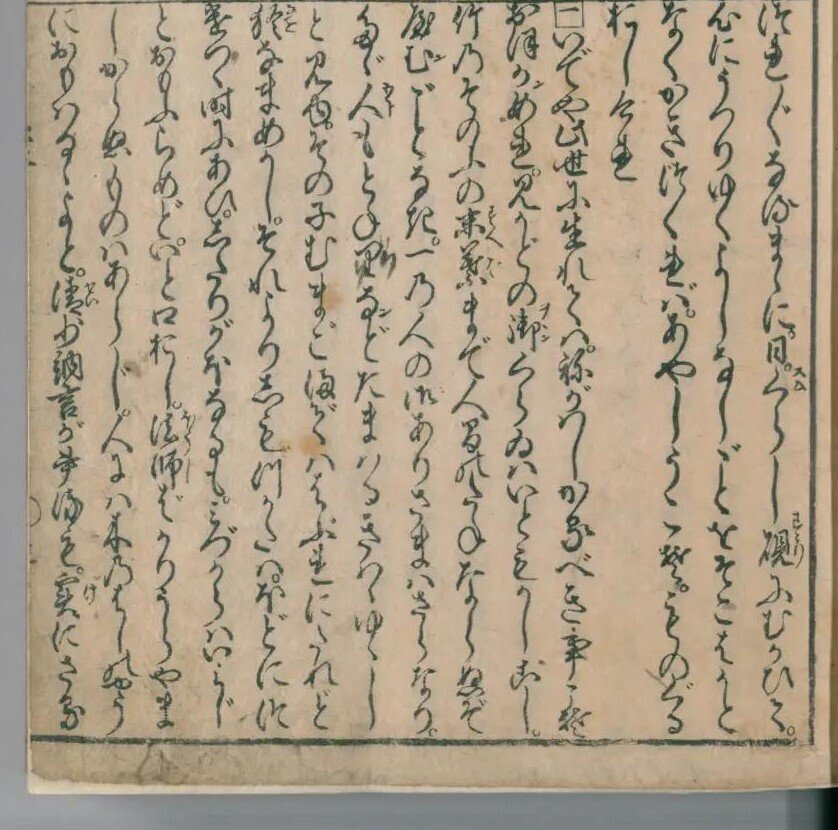 つれ〴〵なるまゝに。日くらし硯にむかひて。
心にうつりゆくよしなしごとをそこはかと
なくかきつくれば。あやしうこそ。ものぐる
おしけれ
一いでや此世に生れては。ねがはしかるべき事こそ
おほかめれ。みかどの御くらゐはいともかしこし。
竹のそのふの末葉まで人間のたねならぬぞ
やむごとなき。一の人の御ありさまはさらなり。
たゞ人もとねりなどたまはるきはゝゆゝし
と見ゆ。その子むまごまではゝふれにたれど
猶なまめかし。それよりしもつかたは。ほどにつ
けつゝ時にあひ。したりがほなるも。みづからはいみじ
とおもふらめど。いと口おし。法師ばかりうらやま
しからぬものはあらじ。人には木のはしのやう
におもはるゝよと。清少納言がかけるも。実にさる